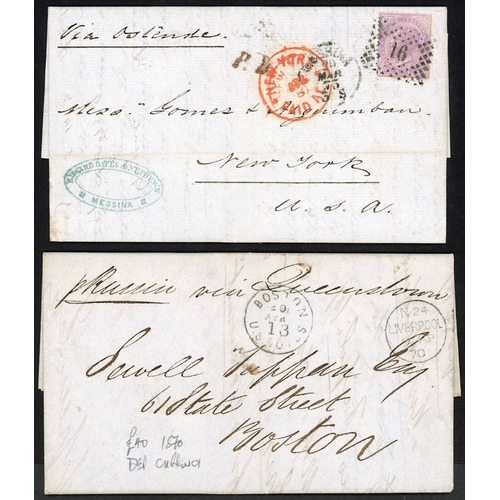 Via Ostende
P.D.
NEW YORK
PAID ALL
16
Mess. Gomes &
New York
U.S.A.
MESSINA
p Russia via Queenstown
BOSTON
APR
13
N 24
LIVERPOOL
70
Sewell Tappan Esq
61 State Street
Boston
£40 1870